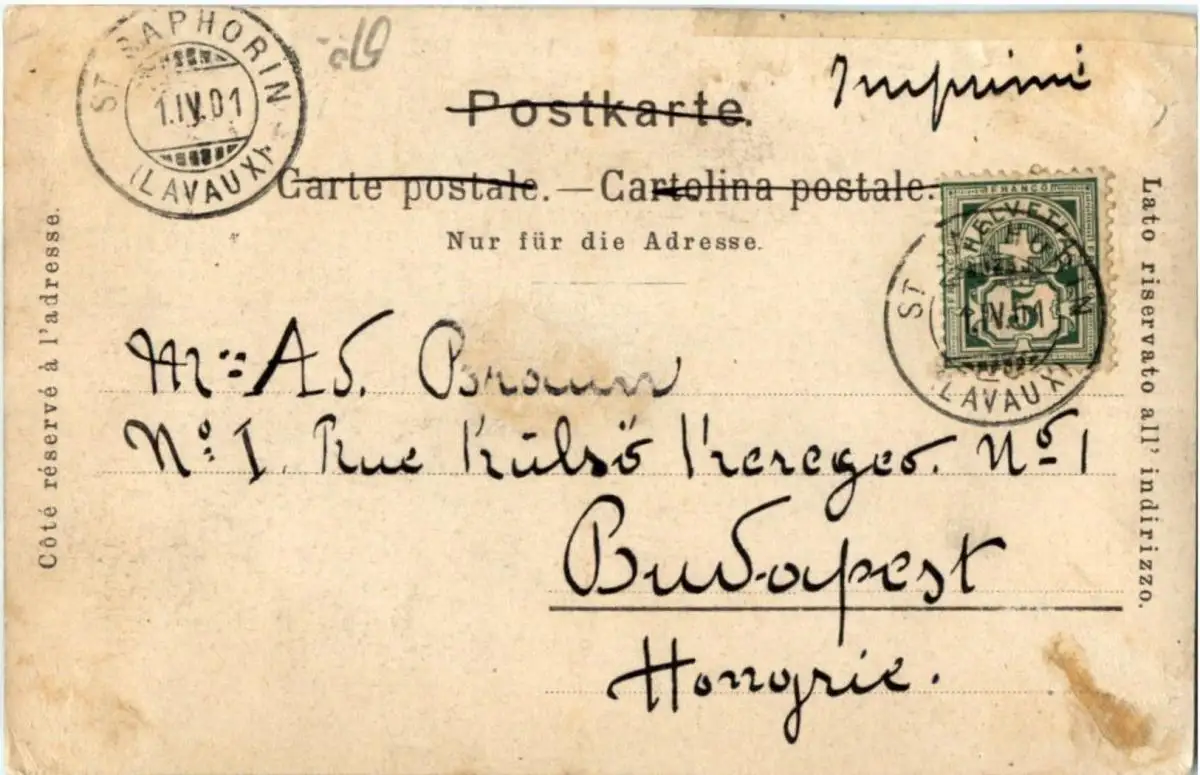 ST SAPHORIN
1.IV.01
(LAVAUX)
Imprimé
Postkarte.
Carte postale. — Cartolina postale.
Nur für die Adresse.
Côté réservé à l'adresse.
Lato riservato all' indirizzo.
FRANCO
HELVETIA
5
ST SAPHORIN
1.IV.01
(LAVAUX)
Ad. Braun
No. I. Rue Külsö No 1
Budapest
Hongrie.